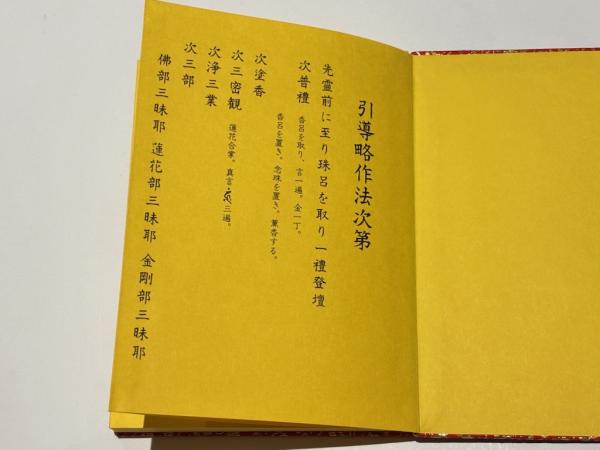 引導略作法次第
先霊前に至り珠呂を取り一禮登壇
次普禮 香呂を取り、言一遍。金一丁。
次塗香 香呂を置き。念珠を置き。薫香する。
次三密観 蓮花合掌。真言・三遍。
次浄三業
次三部
佛部三昧耶 蓮花部三昧耶 金剛部三昧耶